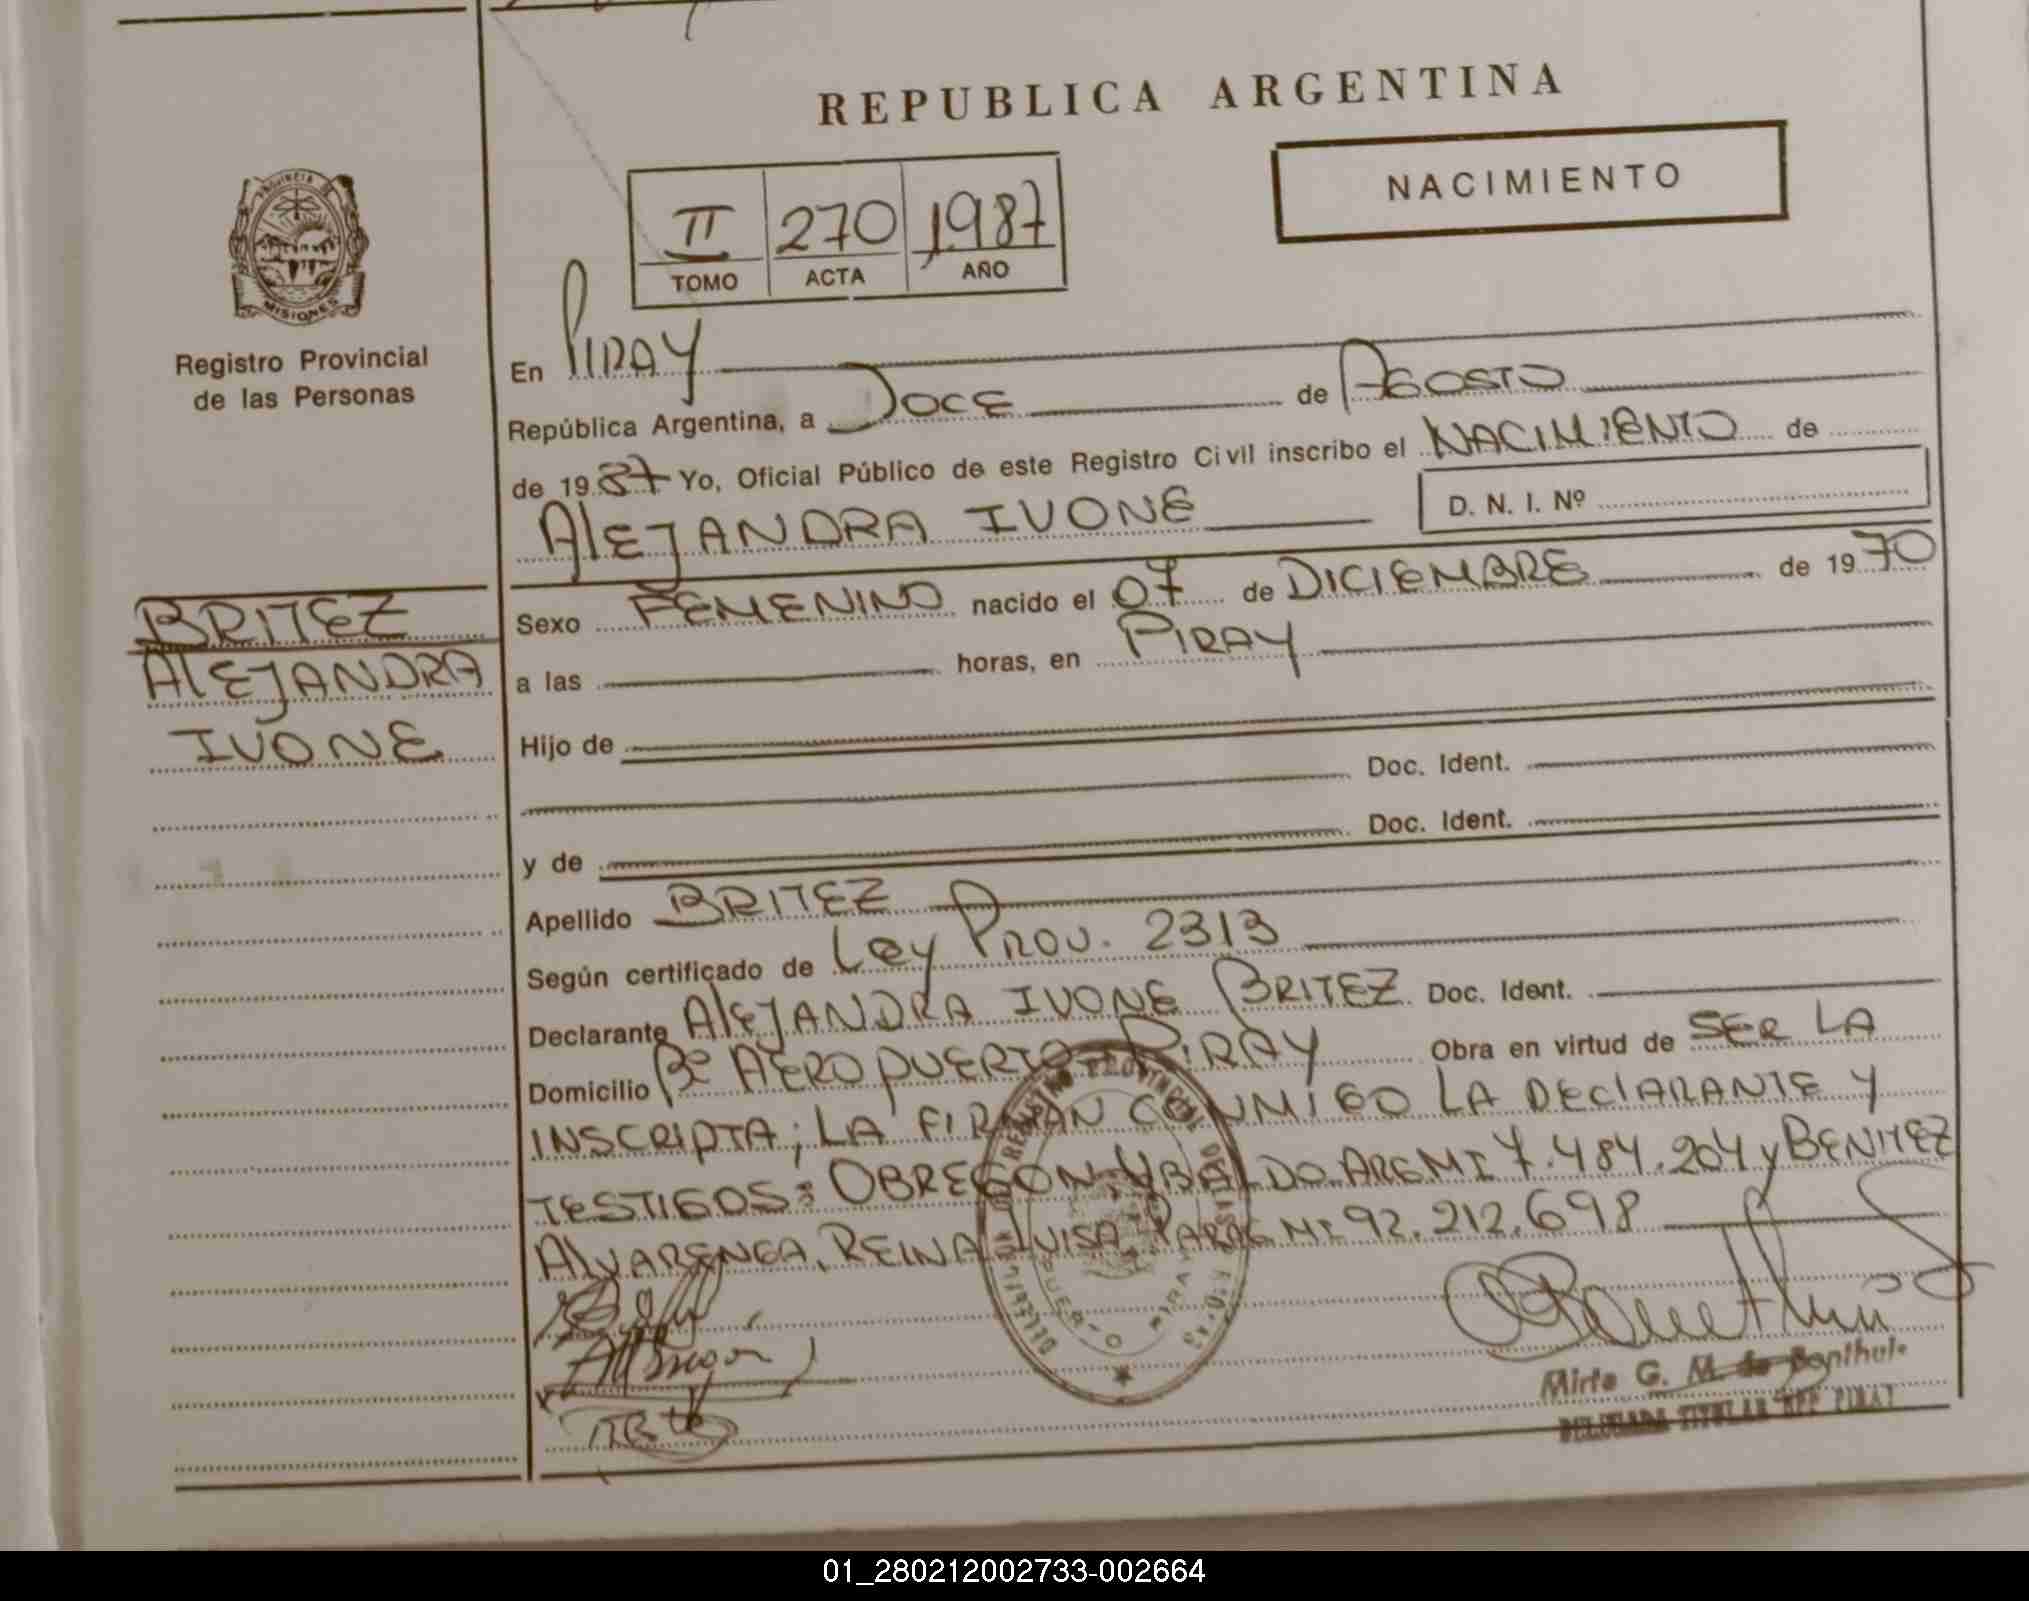 REPUBLICA ARGENTINA
NACIMIENTO
II 270 1987
TOMO ACTA AÑO
PROVINCIA DE
MISIONES
Registro Provincial
de las Personas
En PIRAY
República Argentina, a DOCE de AGOSTO
de 1987 Yo, Oficial Público de este Registro Civil inscribo el NACIMIENTO de
ALEJANDRA IVONE D. N. I. Nº
BRITEZ
ALEJANDRA
IVONE
Sexo FEMENINO nacido el 07 de DICIEMBRE de 1970
a las horas, en PIRAY
Hijo de
Doc. Ident.
y de Doc. Ident.
Apellido BRITEZ
Según certificado de Ley PROV. 2313
Declarante ALEJANDRA IVONE BRITEZ Doc. Ident.
Domicilio Bº AEROPUERTO - PIRAY Obra en virtud de SER LA
INSCRIPTA; LA FIRMAN CONMIGO LA DECLARANTE Y
TESTIGOS: OBREGON, UBALDO ARG MI 7.484.204 y BENITEZ
ALVARENGA, REINA LUISA PARAG MI 92.212.698
REGISTRO PROVINCIAL DE LAS PERSONAS
PUERTO PIRAY
Mirta G. M. de
DELEGADA TITULAR RPP PIRAY
01_280212002733-002664